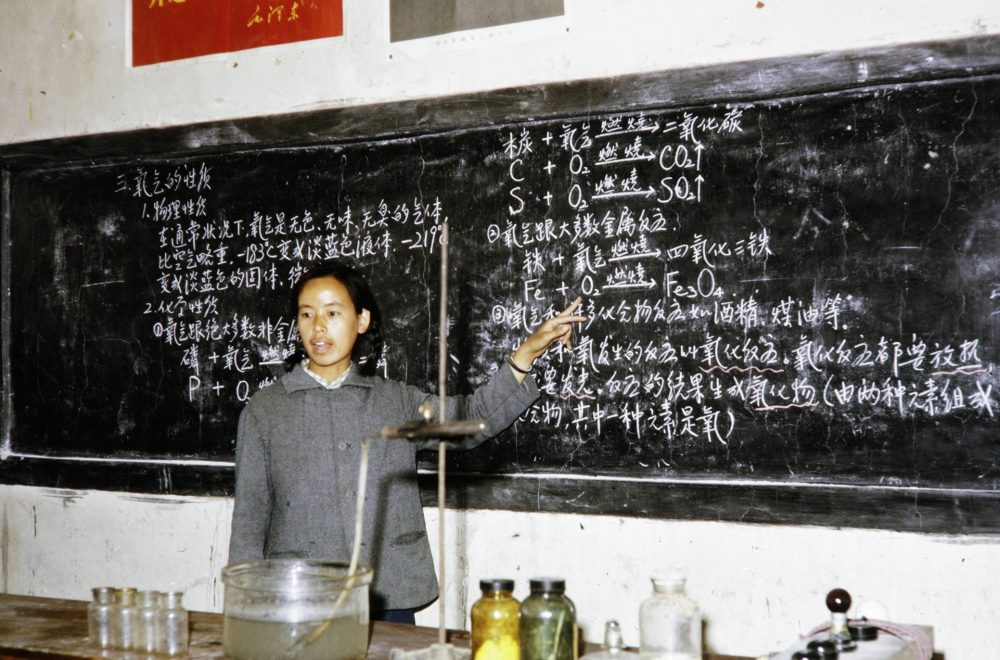 毛泽东
三.氧气的性质
1.物理性质
在通常状况下,氧气是无色、无味、无臭的气体,
比空气略重,-183℃变成淡蓝色液体,-219℃
变成淡蓝色的固体,微
2.化学性质
①氧气跟绝大多数非金属
磷 + 氧气 燃
P + O₂ 燃
木炭 + 氧气 燃烧→ 二氧化碳
C + O₂ 燃烧→ CO₂↑
S + O₂ 燃烧→ SO₂↑
②氧气跟大多数金属反应.
铁 + 氧气 燃烧→ 四氧化三铁
Fe + O₂ 燃烧→ Fe₃O₄
③氧气和 多化合物反应如酒精、煤油等.
和氧发生的反应叫氧化反应.氧化反应都要放热
要发光.反应的结果生成氧化物(由两种元素组成
合物,其中一种元素是氧)